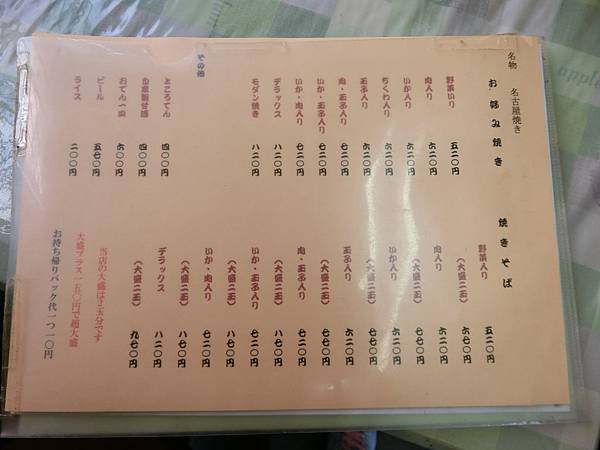 名物 名古屋焼き
お好み焼き
野菜いり 五二〇円
肉入り 六二〇円
いか入り 六二〇円
ちくわ入り 六二〇円
玉子入り 六二〇円
肉・玉子入り 七二〇円
いか・玉子入り 七二〇円
いか・肉入り 七二〇円
デラックス 八二〇円
モダン焼き 八二〇円
その他
ところてん 四〇〇円
四〇〇円
おでん一皿 六〇〇円
ビール 五七〇円
ライス 二〇〇円
焼きそば
野菜入り 五二〇円
(大盛二玉) 六七〇円
肉入り 六二〇円
(大盛二玉) 七七〇円
いか入り 六二〇円
(大盛二玉) 七七〇円
玉子入り 六二〇円
(大盛二玉) 七七〇円
肉・玉子入り 七二〇円
(大盛二玉) 八七〇円
いか・玉子入り 七二〇円
(大盛二玉) 八七〇円
いか・肉入り 七二〇円
(大盛二玉) 八七〇円
デラックス 八二〇円
(大盛二玉) 九七〇円
当店の大盛は2玉分です
大盛プラス一五〇円で超大盛
お持ち帰りパック代一つ一〇円